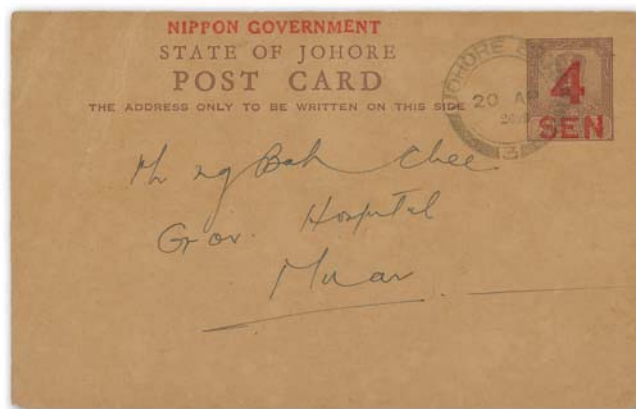 NIPPON GOVERNMENT
STATE OF JOHORE
POST CARD
THE ADDRESS ONLY TO BE WRITTEN ON THIS SIDE
JOHORE
20 AP
3
4
SEN
Mr ng Bah Chee
Gov. Hospital
Muar